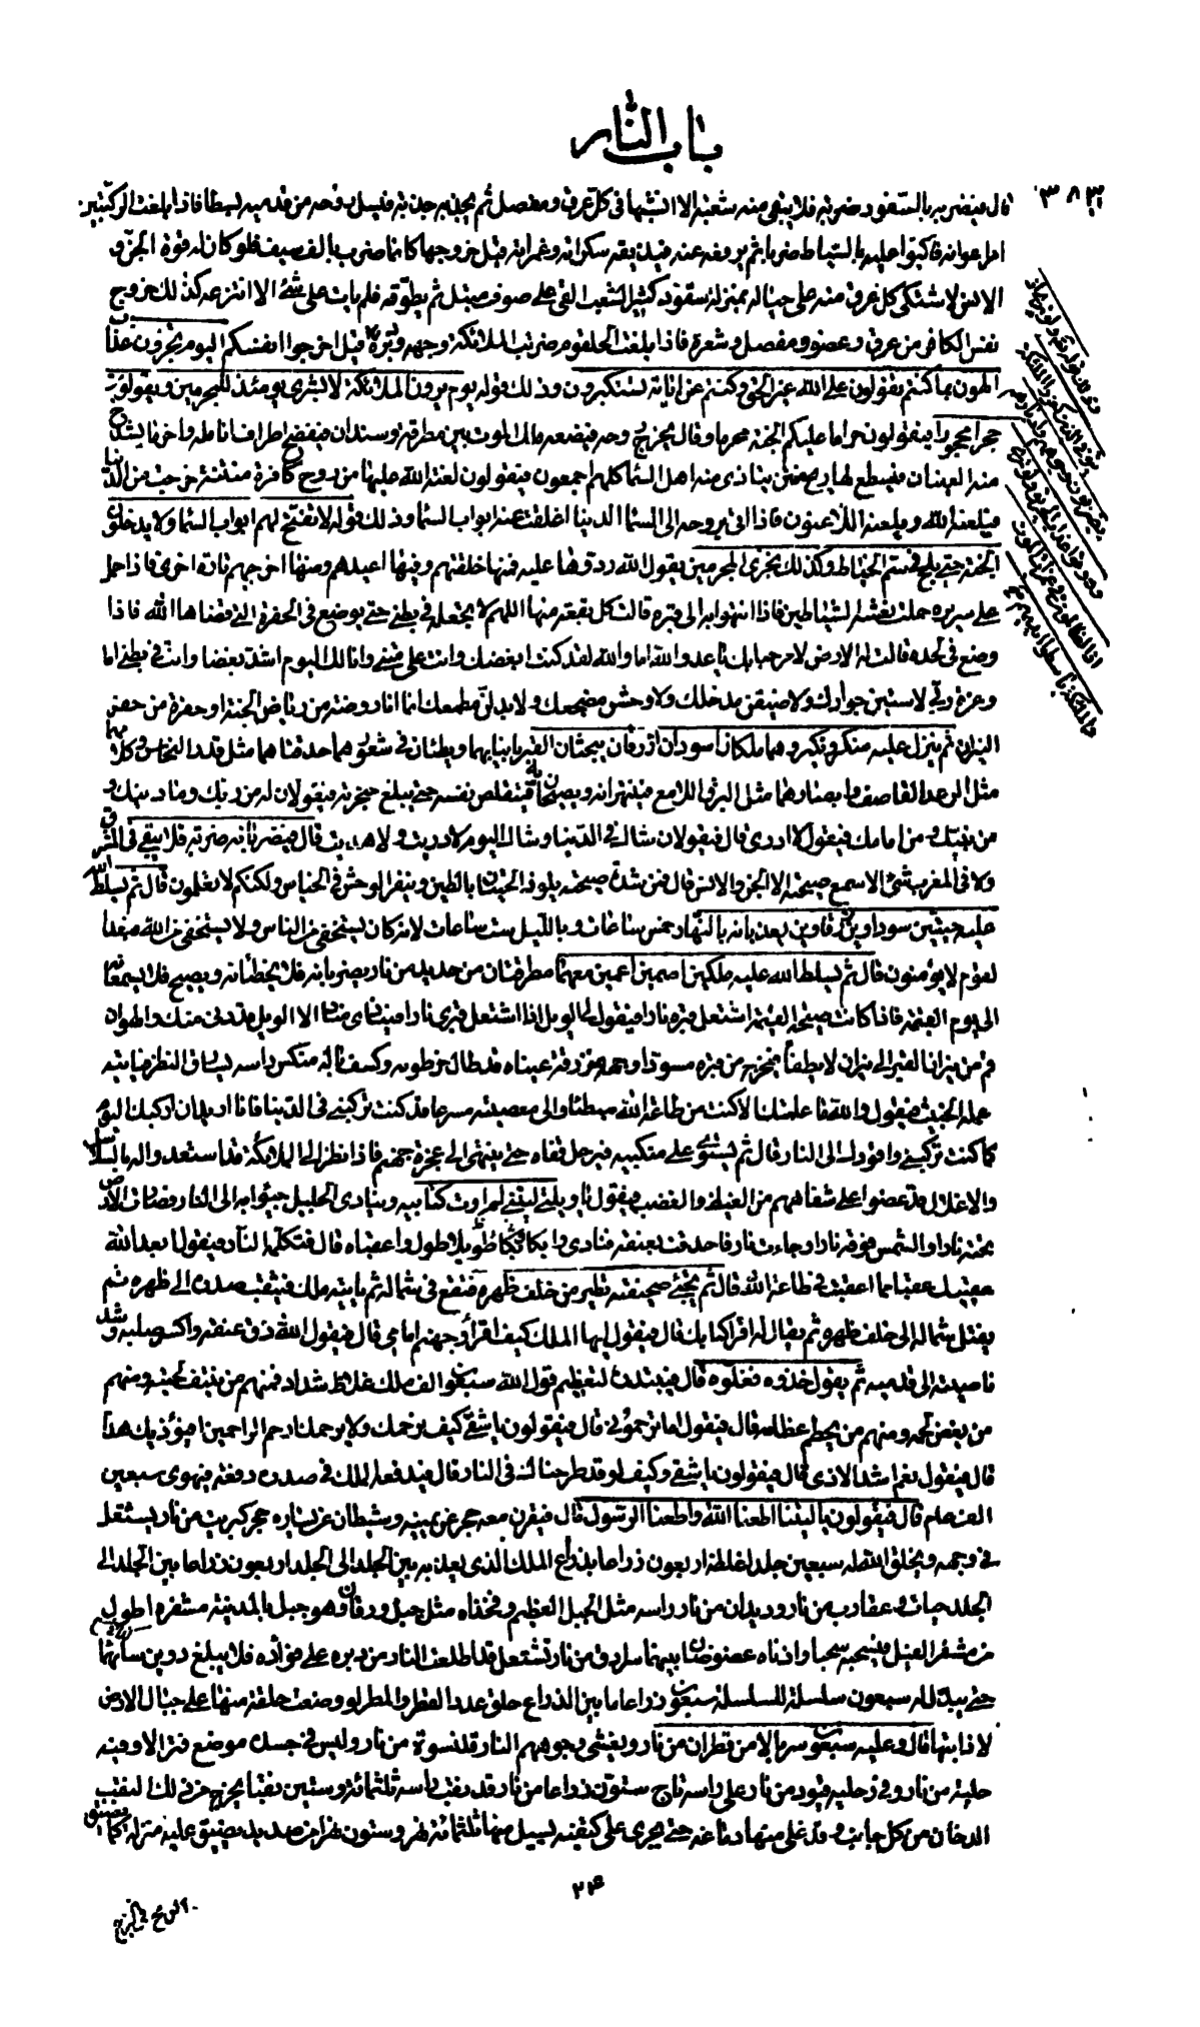 باب النار
٣٨٣
قال فيضربه بالسفود ضربة فلا يبقى منه شعبة الا انشبها في كل عرق ومفصل ثم يجذبه جذبة فيسل روحه من قدميه بسطا فاذا بلغت الركبتين
امر اعوانه فاكبوا عليه بالسياط ضربا ثم يرفعه عنه فيذيقه سكراته وغمراته قبل خروجها كانما ضرب بالف سيف فلو كان له قوة الجن و
الانس لاشتكى كل عرق منه على حياله بمنزلة سفود كثير الشعب القى على صوف مبتل ثم يطوقه فلم يات على شئ الا انتزعه كذلك خروج
نفس الكافر من عرق وعضو ومفصل وشعرة فاذا بلغت الحلقوم ضربت الملائكة وجهه ودبره وقيل اخرجوا انفسكم اليوم تجزون عذاب
الهون بما كنتم تقولون على الله غير الحق وكنتم عن اياته تستكبرون وذلك قوله يوم يرون الملائكة لا بشرى يومئذ للمجرمين ويقولون
حجرا محجورا فيقولون حراما عليكم الجنة محرما وقال يخرج روحه فيضعه ملك الموت بين مطرقة وسندان فيفضخ اطراف انامله واخر ما يشدخ
منه العينان فيسطع لها ريح منتن يتاذى منه اهل السما كلهم اجمعون فيقولون لعنة الله عليها من روح كافرة منتنة خرجت من الدنيا
فيلعنه الله ويلعنه اللاعنون فاذا اتي بروحه الى السما الدنيا اغلقت عنه ابواب السما وذلك قوله لا تفتح لهم ابواب السما ولا يدخلون
الجنة حتى يلج الجمل في سم الخياط وكذلك نجزى المجرمين يقول الله ردوها عليه فمنها خلقتهم وفيها اعيدهم ومنها اخرجهم تارة اخرى فاذا حمل
على سريره حملت نعشه الشياطين فاذا انتهوا به الى قبره قالت كل بقعة منها اللهم لا تجعله في بطني حتى يوضع في الحفرة التي قضاها الله فاذا
وضع في لحده قالت له الارض لا مرحبا بك يا عدو الله اما والله لقد كنت ابغضك وانت على متني وانا لك اليوم اشد بغضا وانت في بطني اما
وعزة ربي لاسيئن جوارك ولاضيقن مدخلك ولاوحشن مضجعك ولابدلن مطمعك انما انا روضة من رياض الجنة او حفرة من حفر
النيران ثم ينزل عليه منكر ونكير وهما ملكان اسودان ازرقان يبحثان القبر بانيابهما ويطئان في شعورهما حدقتاهما مثل قدر النحاس وكلامهما
مثل الرعد القاصف وابصارهما مثل البرق اللامع فينتهرانه ويصيحان به فيتقلص نفسه حتى يبلغ حنجرته فيقولان له من ربك وما دينك و
من نبيك ومن امامك فيقول لا ادرى قال فيقولان شاك في الدنيا وشاك اليوم لا دريت ولا هديت قال فيضربانه ضربة فلا يبقى في المشرق
ولا في المغرب شئ الا سمع صيحته الا الجن والانس قال فمن شدة صيحته يلوذ الحيتان بالطين وينفر الوحش في الخياس ولكنكم لا تعلمون قال ثم يسلط الله
عليه حيتين سوداوين زرقاوين يعذبانه بالنهار خمس ساعات وبالليل ست ساعات لانه كان يستخفى من الناس ولا يستخفى من الله فبعدا
لقوم لا يؤمنون قال ثم يسلط الله عليه ملكين اصمين اعميين معهما مطرقتان من حديد من نار يضربانه فلا يخطئانه ويصيح فلا يسمعانه
الى يوم القيمة فاذا كانت صيحة القيمة اشتعل قبره نارا فيقول لى الويل اذا اشتعل قبرى نارا فينادى مناد الا الويل قد دنى منك والهوان
قم من نيران القبر الى نيران لا يطفأ فيخرج من قبره مسودا وجهه مزرقة عيناه قد طال خرطومه وكسف باله منكس راسه يسارق النظر فياتيه
عمله الخبيث فيقول والله ما علمتك الا كنت من طاعة الله مبطئا والى معصيته مسرعا قد كنت تركبني في الدنيا فانا اريد ان اركبك اليوم
كما كنت تركبني واقودك الى النار قال ثم يستوى على منكبيه فيرحل قفاه حتى ينتهى الى عجزة جهنم فاذا نظر الى الملائكة قد استعدوا له بالسلاسل
والاغلال قد عضوا على شفاههم من الغيظ والغضب فيقول يا ويلتي ليتني لم اوت كتابيه وينادى الجليل جيئوا به الى النار فصارت الارض
تحته نارا والشمس فوقه نارا وجاءت نار فاحدقت بعنقه فنادى وابكى بكاء طويلا طول واعقباه قال فتكلمه النار فيقول ابعد الله
عقبيك عقبا مما اعقبت في طاعة الله قال ثم يجئ صحيفته تطير من خلف ظهره فتقع في شماله ثم ياتيه ملك فيثقب صدره الى ظهره ثم
يفتل شماله الى خلف ظهره ثم يقال له اقرا كتابك قال فيقول ايها الملك كيف اقرأ وجهنم امامى قال فيقول الله دق عنقه واكسر صلبه وشد
ناصيته الى قدميه ثم يقول خذوه فغلوه قال فيبتدره لتعظيم قول الله سبعون الف ملك غلاظ شداد فمنهم من ينتف لحيته ومنهم
من يعض لحمه ومنهم من يحطم عظامه قال فيقول اما ترحمونى قال فيقولون يا شقى كيف نرحمك ولا يرحمك ارحم الراحمين افيؤذيك هذا
قال فيقول نعم اشد الاذى قال فيقولون يا شقى وكيف لو قد طرحناك في النار قال فيدفعه الملك في صدره دفعة فيهوى سبعين
الف عام قال فيقولون يا ليتنا اطعنا الله واطعنا الرسول قال فيقرن معه حجر عن يمينه وشيطان عن يساره حجر كبريت من نار يشتعل
في وجهه ويخلق الله له سبعين جلدا غلظه اربعون ذراعا بذراع الملك الذى يعذبه بين الجلد الى الجلد اربعون ذراعا بين الجلد الى
الجلد حيات وعقارب من نار وديدان من نار راسه مثل الجبل العظيم وفخذاه مثل جبل ورقان وهو جبل بالمدينة مشفره اطول
من مشفر الفيل فيسحبه سحبا واذناه عضوضان بينهما سرادق من نار تشتعل قد اطلعت النار من دبره على فؤاده فلا يبلغ دوين سائرهما
حتى يبدل له سبعون سلسلة للسلسلة سبعون ذراعا ما بين الذراع حلق عدد القطر والمطر لو وضعت حلقة منها على جبال الارض
لاذابتها قال وعليه سبعون سربالا من قطران من نار ويغشى وجوههم النار قلنسوة من نار وليس في جسده موضع فتر الا وفيه
حلية من نار وفي رجليه قيود من نار على راسه تاج ستون ذراعا من نار قد نقب راسه ثلثمائة وستين نقبا يخرج من ذلك النقب
الدخان من كل جانب وقد غلى منها دماغه حتى يجرى على كتفيه يسيل منها ثلثمائة نهر وستون نهرا من صديد يضيق عليه منزله كما يضيق
٢٣